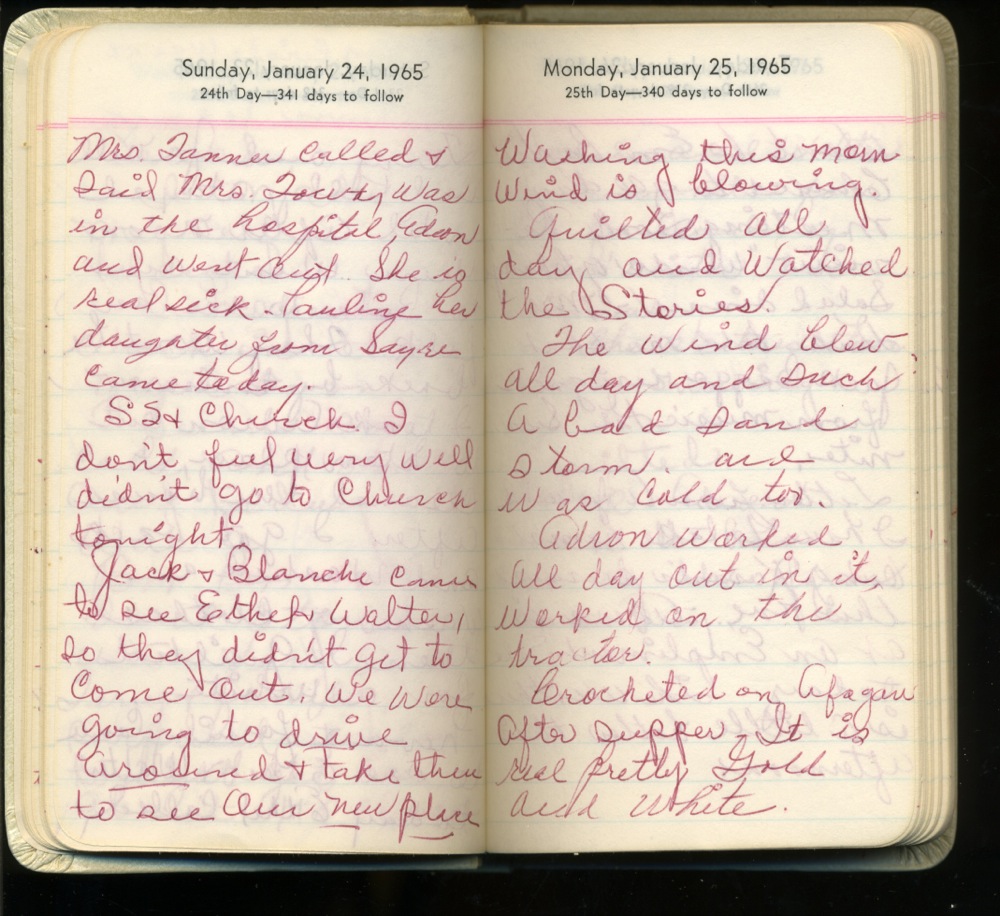 Sunday, January 24, 1965
24th Day—341 days to follow
Mrs. Tanner Called &
Said Mrs. was
in the hospital, Adron
and went out. She is
real sick. Pauline her
daughter from Sayre
Came today.
SS & Church. I
don't feel very well
didn't go to Church
tonight
Jack & Blanche came
to see Ethel & Walter,
so they didn't get to
Come Out. We were
going to drive
around & take them
to see Our new place
Monday, January 25, 1965
25th Day—340 days to follow
Washing this morn
Wind is blowing.
Quilted All
day and Watched
the Stories.
The Wind blew
all day and Such
A bad Sand
storm. and
was Cold too.
Adron Worked
All day out in it,
Worked on the
tractor.
Crocheted on Afagan
After supper. It is
real pretty Gold
and White.